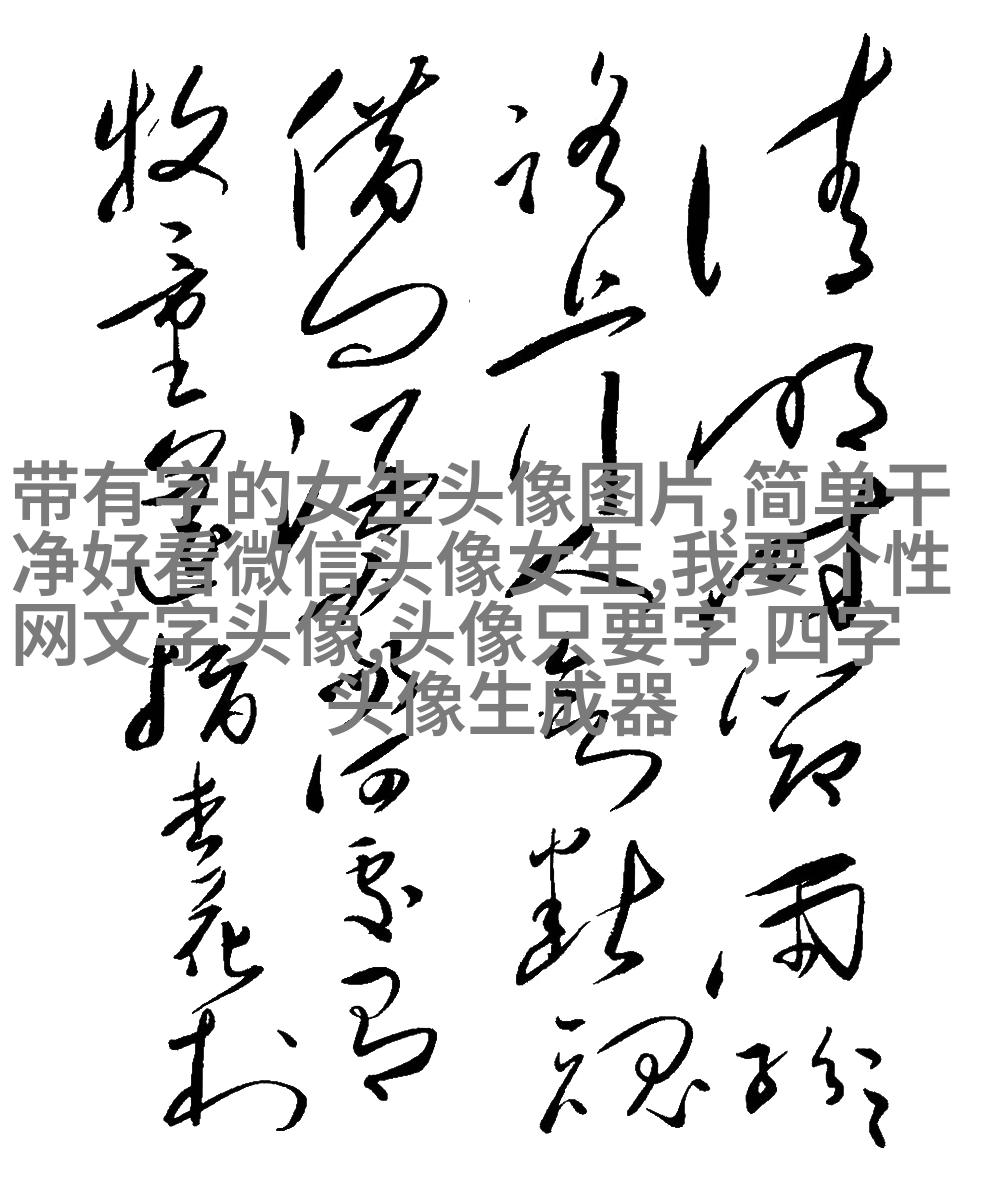 清明時節雨紛紛
路上行人欲斷魂
借問酒家何處有
牧童遙指杏花村
带有字的女生头像图片,简单干
净好看微信头像女生,我要个性
网文字头像,头像只要字,四字
头像生成器